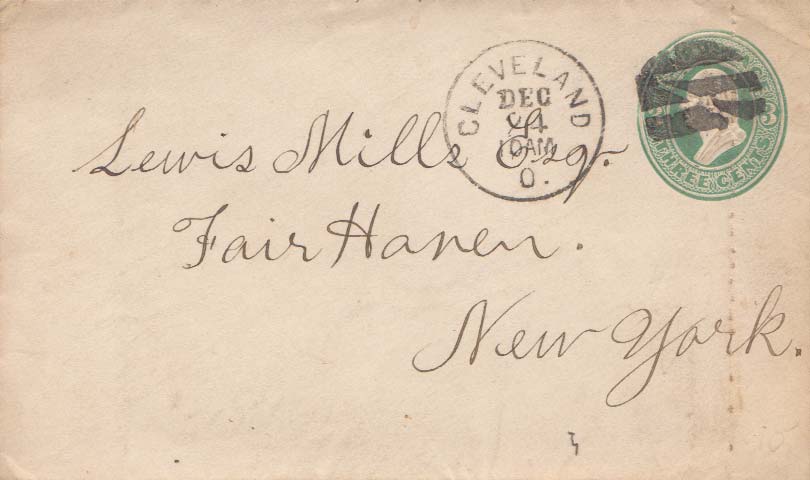 CLEVELAND
DEC
10AM
O.
THREE CENTS
Lewis Mills Esq.
Fair Haven.
New York.